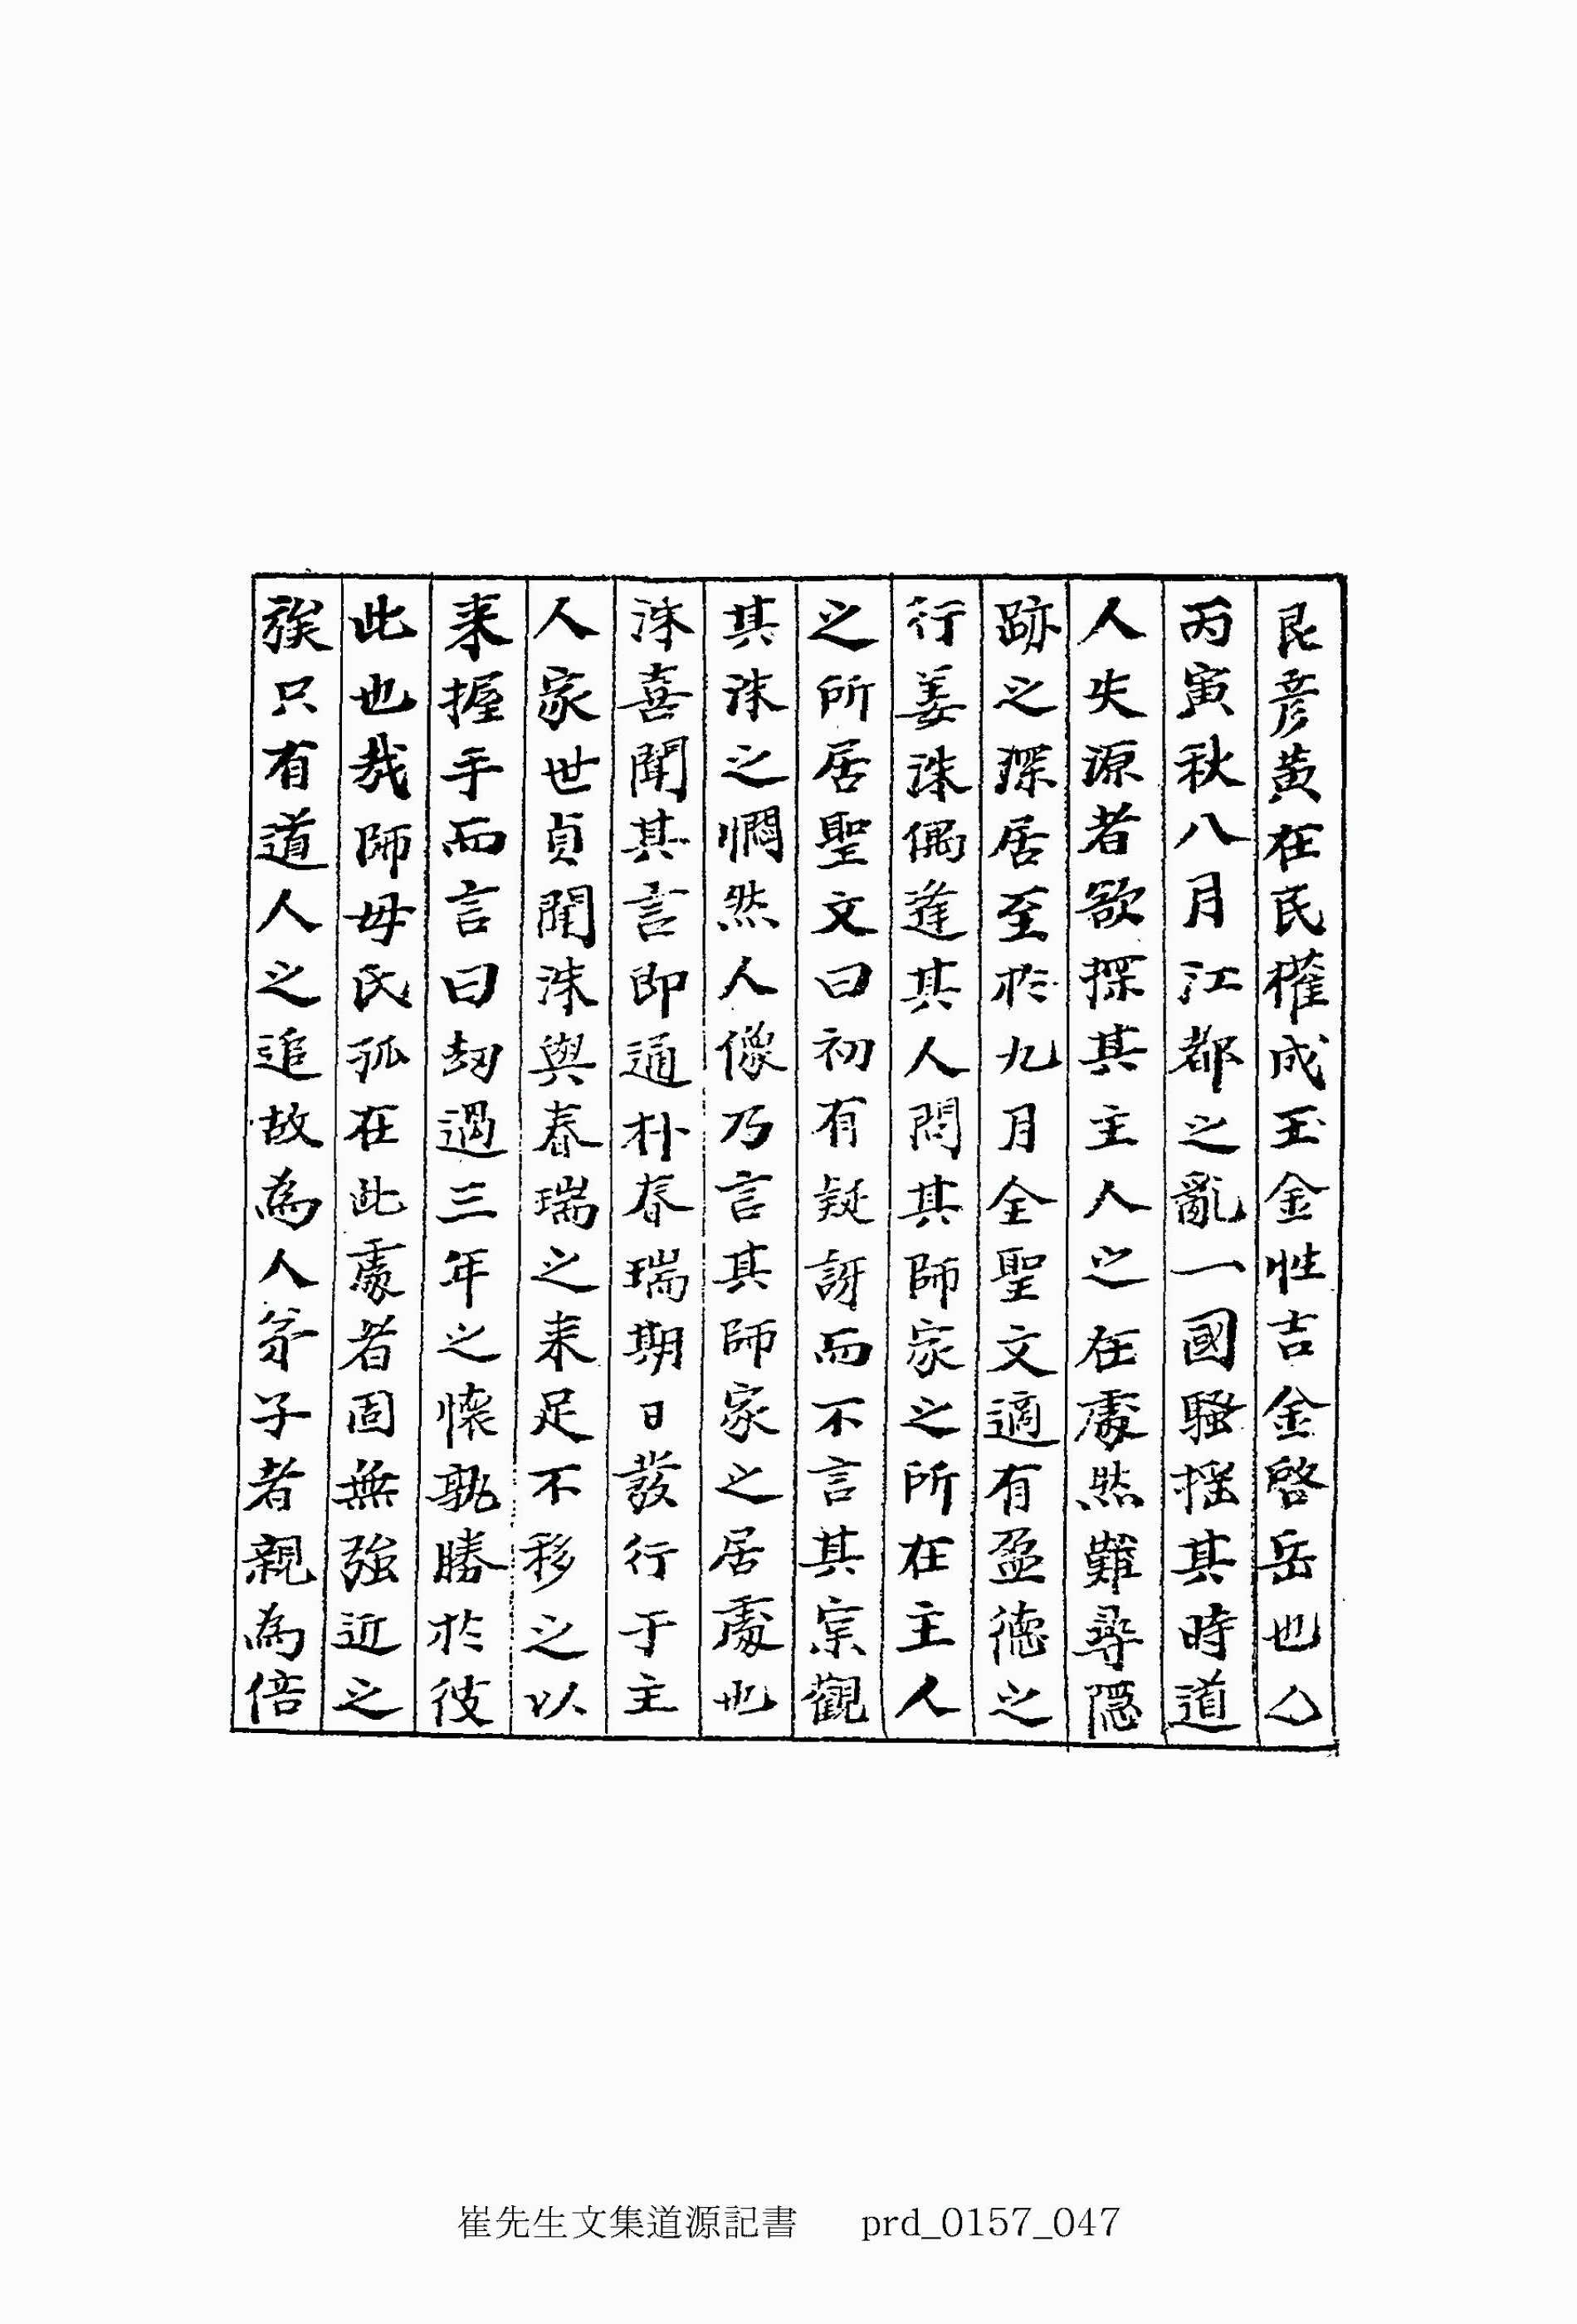 艮彦黄在民權成玉金性吉金啓岳也△
丙寅秋八月江都之亂一國騷搖其時道
人失源者欲探其主人之在處然難尋隱
跡之深居至於九月全聖文適有盈德之
行姜洙偶逢其人問其師家之所在主人
之所居聖文曰初有疑訝而不言其宗觀
其洙之憪然人像乃言其師家之居處也
洙喜聞其言卽通朴春瑞期日發行于主
人家世貞聞洙與春瑞之来足不移之以
来握手而言曰刼過三年之懷孰勝於彼
此也哉師母氏孤在此處者固無強近之
族只有道人之追故為人弟子者親為倍
崔先生文集道源記書 prd_0157_047